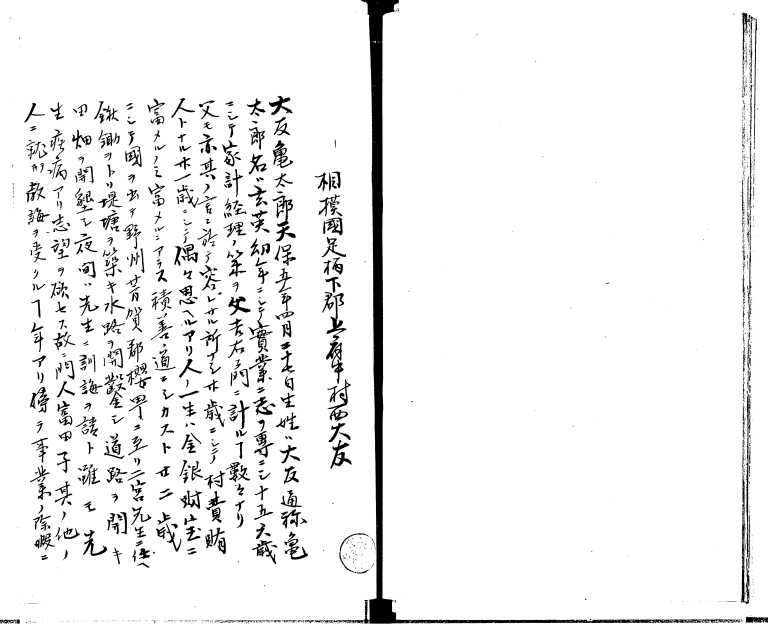 相摸國足柄下郡上府中村西大友
大友亀太郎天保五年四月二十七日生姓ハ大友通称亀
太郎名ハ玄英幼年ニシテ實業ニ志ヲ專ニシ十五六歳
ニシテ家計経理ノ策ヲ父吉右ヱ門ニ計ルヿ數々ナリ
父モ亦其ノ言ニ容レサル所ナシ廿歳ニシテ村費賄
人トナル廿一歳ニシテ偶々思ヘルアリ人ノ一生ハ金銀財宝ニ
富メルノミ富メルニアラス積善ノ道ニシカスト廿二歳
ニシテ國ヲ出テ野州芳賀郡櫻町ニ至リ二宮先生ニ仕ヘ
鍬鋤ヲトリ堤塘ヲ築キ水路ヲ開鑿シ道路ヲ開キ
田畑ヲ開墾シ夜間ハ先生ニ訓誨ヲ請ト雖モ先
生疾病アリ志望ヲ欲セス故ニ門人富田子其ノ他ノ
人ニ就テ教誨ヲ受クルヿ年アリ傳ラ事業ノ余暇ニ